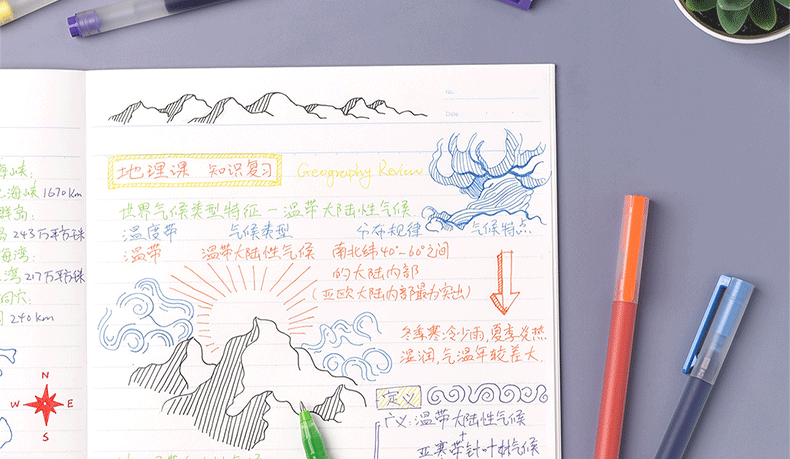 No.
Date
地理课 知识复习 Geography Review
世界气候类型特征-温带大陆性气候
温度带 气候类型 分布规律 气候特点
温带 温带大陆性气候 南北纬40°~60°之间
的大陆内部
(亚欧大陆内部最为突出)
冬季寒冷少雨,夏季炎热
湿润,气温年较差大
定义
广义:温带大陆性气候
+
亚寒带针叶林气候
海峡:
海峡1670km
群岛:
243万平方千米
海湾:
湾217万平方千米
洞穴:
240km
N
W E
S